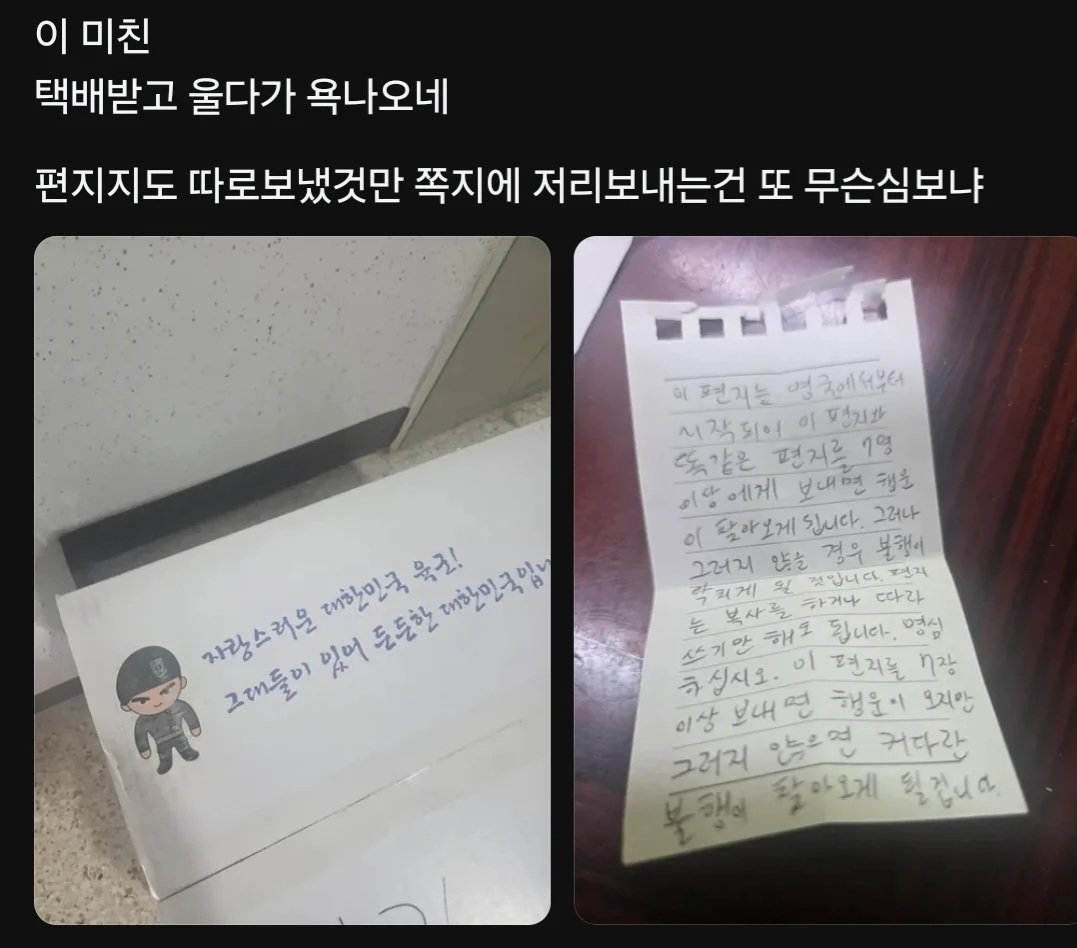 이 미친
택배받고 울다가 욕나오네
편지지도 따로보냈것만 쪽지에 저리보내는건 또 무슨심보냐
자랑스러운 대한민국 육군!
그대들이 있어 든든한 대한민국입니
이 편지는 영국에서부터
시작되어 이 편지와
똑같은 편지를 7명
이상에게 보내면 행운
이 찾아오게 됩니다. 그러나
그러지 않을 경우 불행이
닥치게 될 것입니다. 편지
는 복사를 하거나 따라
쓰기만 해도 됩니다. 명심
하십시오. 이 편지를 7장
이상 보내면 행운이 오지만
그러지 않으면 커다란
불행이 찾아오게 될겁니다.